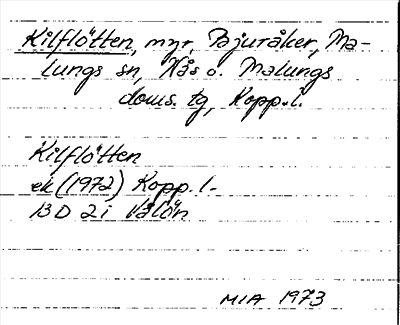 Kilflötten, myr, Bjuråker, Ma-
lungs sn, Nås o. Malungs
doms. tg, Kopp. l.
Kilflötten
ek (1972) Kopp. l.
13D 2i Valön
MIA 1973